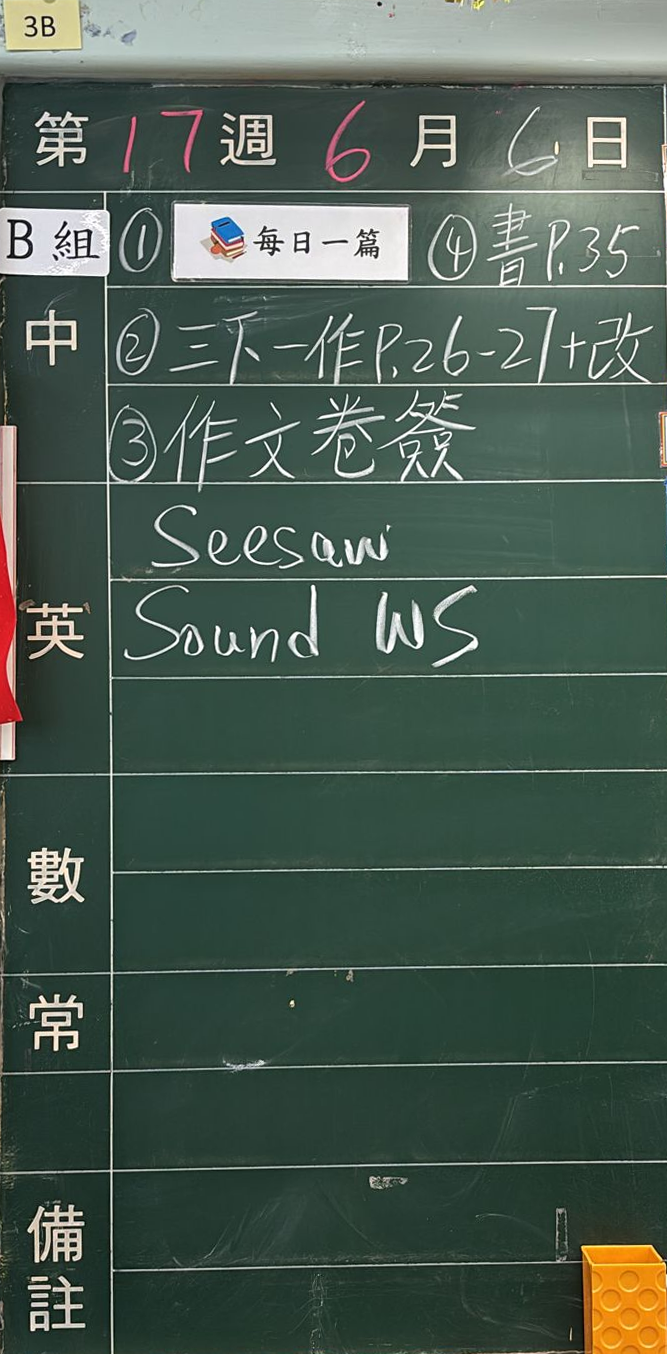 3B
第17週 6月6日
B組 ① 每日一篇 ④書P.35
中 ②三下一作P.26-27+改
③作文卷簽
Seesaw
英 Sound WS
數
常
備註